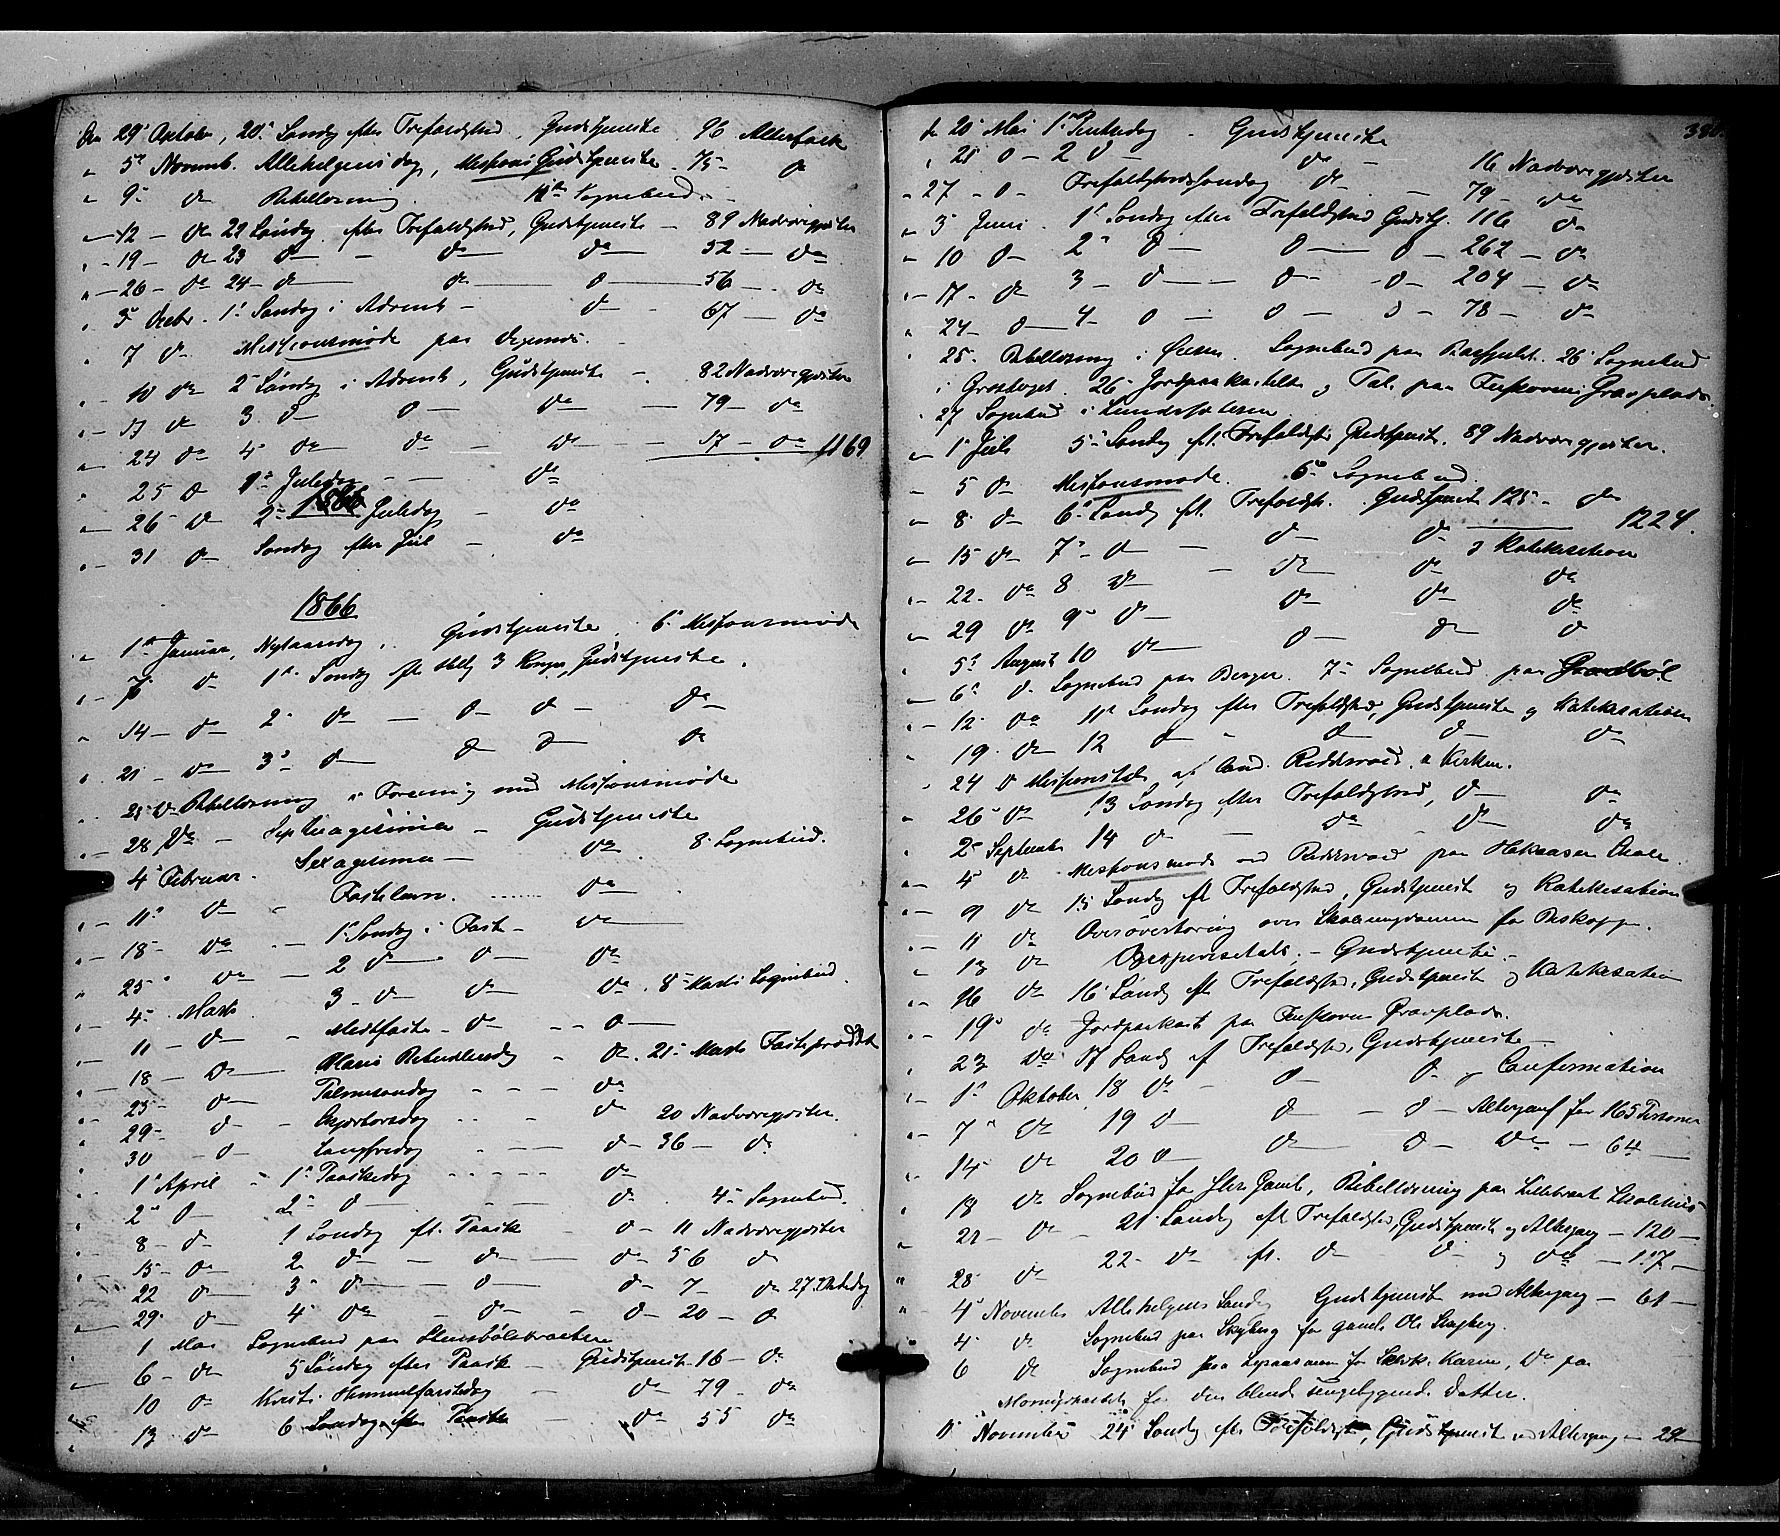 Den 29de Oktober, 20de Søndag efter Trefoldighed, Gudstjeneste 96 Altergjæster
" 5te Novemb. Allehelgensdag, Missions Gudstjeneste 75 - do
" 9de do Bibellæsning. 11te Sognebud.
" 12 - do 22 Søndag efter Trefoldighed, Gudstjeneste - 89 Nadveregjæster
" 19 - do 23 do - do - do - 52 - do
" 26 - do 24 - do - do - do - 56 - do
" 3de Decbr. 1ste Søndag i Advent - do - 67 - do
" 7 do Missionsmøde paa
" 10 do 2den Søndag i Advent, Gudstjeneste - 82 Nadveregjæster
" 17 do 3. do - do - do - 79 - do
" 24 do 4 do do - do - 57 - do 1169
" 25 do 1ste Juledag - - do
" 26 do 2den Juledag - do
" 31 do Søndag efter Juul - do
1866
" 1ste Januar, Nytaarsdag, Gudstjeneste. 6te Missionsmøde
" 7de do 1ste Søndag efter Hellig 3 Konger, Gudstjeneste.
" 14 - do 2den do - do - do - do
" 21 - do 3de do - do do do
25 do Bibellæsning i Forening med Missionsmøde
" 28 do - Septuagesima - Gudstjeneste
" 4de Februar. Sexagesima - do 8de Sognebud.
" 11te do Fastelavn. ........ do
" 18 - do - 1ste Søndag i Faste - do
" 25 do - 2 do - do - do
" 4de Marts 3 - do do - do. 8de Marts Sognebud.
" 11 - do - Midtfaste - do - - do
" 18 - do Mariæ Bebudelsesdag - do. 21de Marts Fasteprædiken
" 25 - do Palmesøndag - - - do
" 29 - do - Skjærthorsdag - - - do 20 Nadveregjæster.
30 - do Langfredag - - - do - 36 - do
" 1ste April - 1ste Paaskedag - - - - do
" 2den do - 2den do - do. 4de Sognebud.
" 8 - do - 1 Søndag eft. Paaske - do - 11 Nadveregjæster
" 15 - do 2 do - do - do 56 do
22 do 3 do - do - do - 7 - do 27.
29. do 4 do - do - do - 20 - do
1 Mai Sognebud paa
" 6 - do 5 Søndag efter Paaske - Gudstjeneste 16 - do
10 do Kristi Himmelfartsdag - do - 79 - do
" 13 - do 6 Søndag efter Paaske - do - 55 do
380.
d. 20 Mai 1ste Pintsedag - Gudstjeneste
" 21 do - 2 do - do - 16 Nadveregjæster
" 27 - do - Trefoldighedssøndag do - 79 - do
" 3de Juni. 1ste Søndag efter Trefoldighed Gudstj. 116 do
" 10 do - 2den do - do - do - 262 - do
" 17 - do 3 - do - do - do - 204 - do
" 24 - do - 4 - do - do - do - 78 - do
" 25. Bibellæsning i Sognebud paa 26de Sognebud
i 26de Jordpaakastelse og Tale paa Furskovens Gravplads.
" 27 Sognebud i
" 1ste Juli 5te Søndag eft. Trefoldighed Gudstjenest. 89 Nadveregjæster.
" 5 do Missionsmøde. 6te Sognebud
" 8. do - 6te Søndag eft. Trefoldigh. Gudstjenest 125 - do 1224.
" 15 do 7de do - do - do og Katekisation
" 22 - do 8 do - do - do do
" 29 do 9de do - do - do - do
" 5te August 10 do - do - do do
" 6te do. Sognebud paa Berger. 7de Sognebud paa
" 12 do 11te Søndag efter Trefoldighed, Gudstjeneste og Katekisation
" 19. do 12 do do do do
" 24 do Missionstale af Cand. Riddervold i Kirken.
" 26de do 13 Søndag efter Trefoldighed, do - do
" 2den September 14 do - do - do - do
" 4de do Missionsmøde ved Riddervold paa Skole.
" 9 do 15 Søndag eft Trefoldighed, Gudstjeneste og Katekisation
" 11 do Overhøring over Skoleungdommen for Biskoppen.
" 13 do - Gudstjeneste. -
" 16 do 16de Søndag eft Trefoldighed, Gudstjeneste og Katekisation
" 19de do Jordpaakast paa Furskovens Gravplads.
" 23 do 17 Søndag ef Trefoldighed, Gudstjeneste -
" 1ste Oktober 18 do - do do og Confirmation
" 7de do 19 do - do - do - Altergang for 165 Personer
" 14de do 20 do - do - do - do - 64 -
18 do Sognebud for Bibellæsning paa
" 21 - do - 21de Søndag eft Trefoldighed, Gudstjeneste og Altergang - 120 -
28 do 22 - do eft. do do og do - 117 -
" 4de November Allehelgens Søndag Gudstjeneste med Altergang - 61 -
4de do Sognebud paa Skyberg for gamle Ole Skyberg.
6 do Sognebud paa for Karen, do paa
for den blinde Datter.
11 November 24de Søndag efter Trefoldighed, Gudstjeneste med Altergang - 29 -